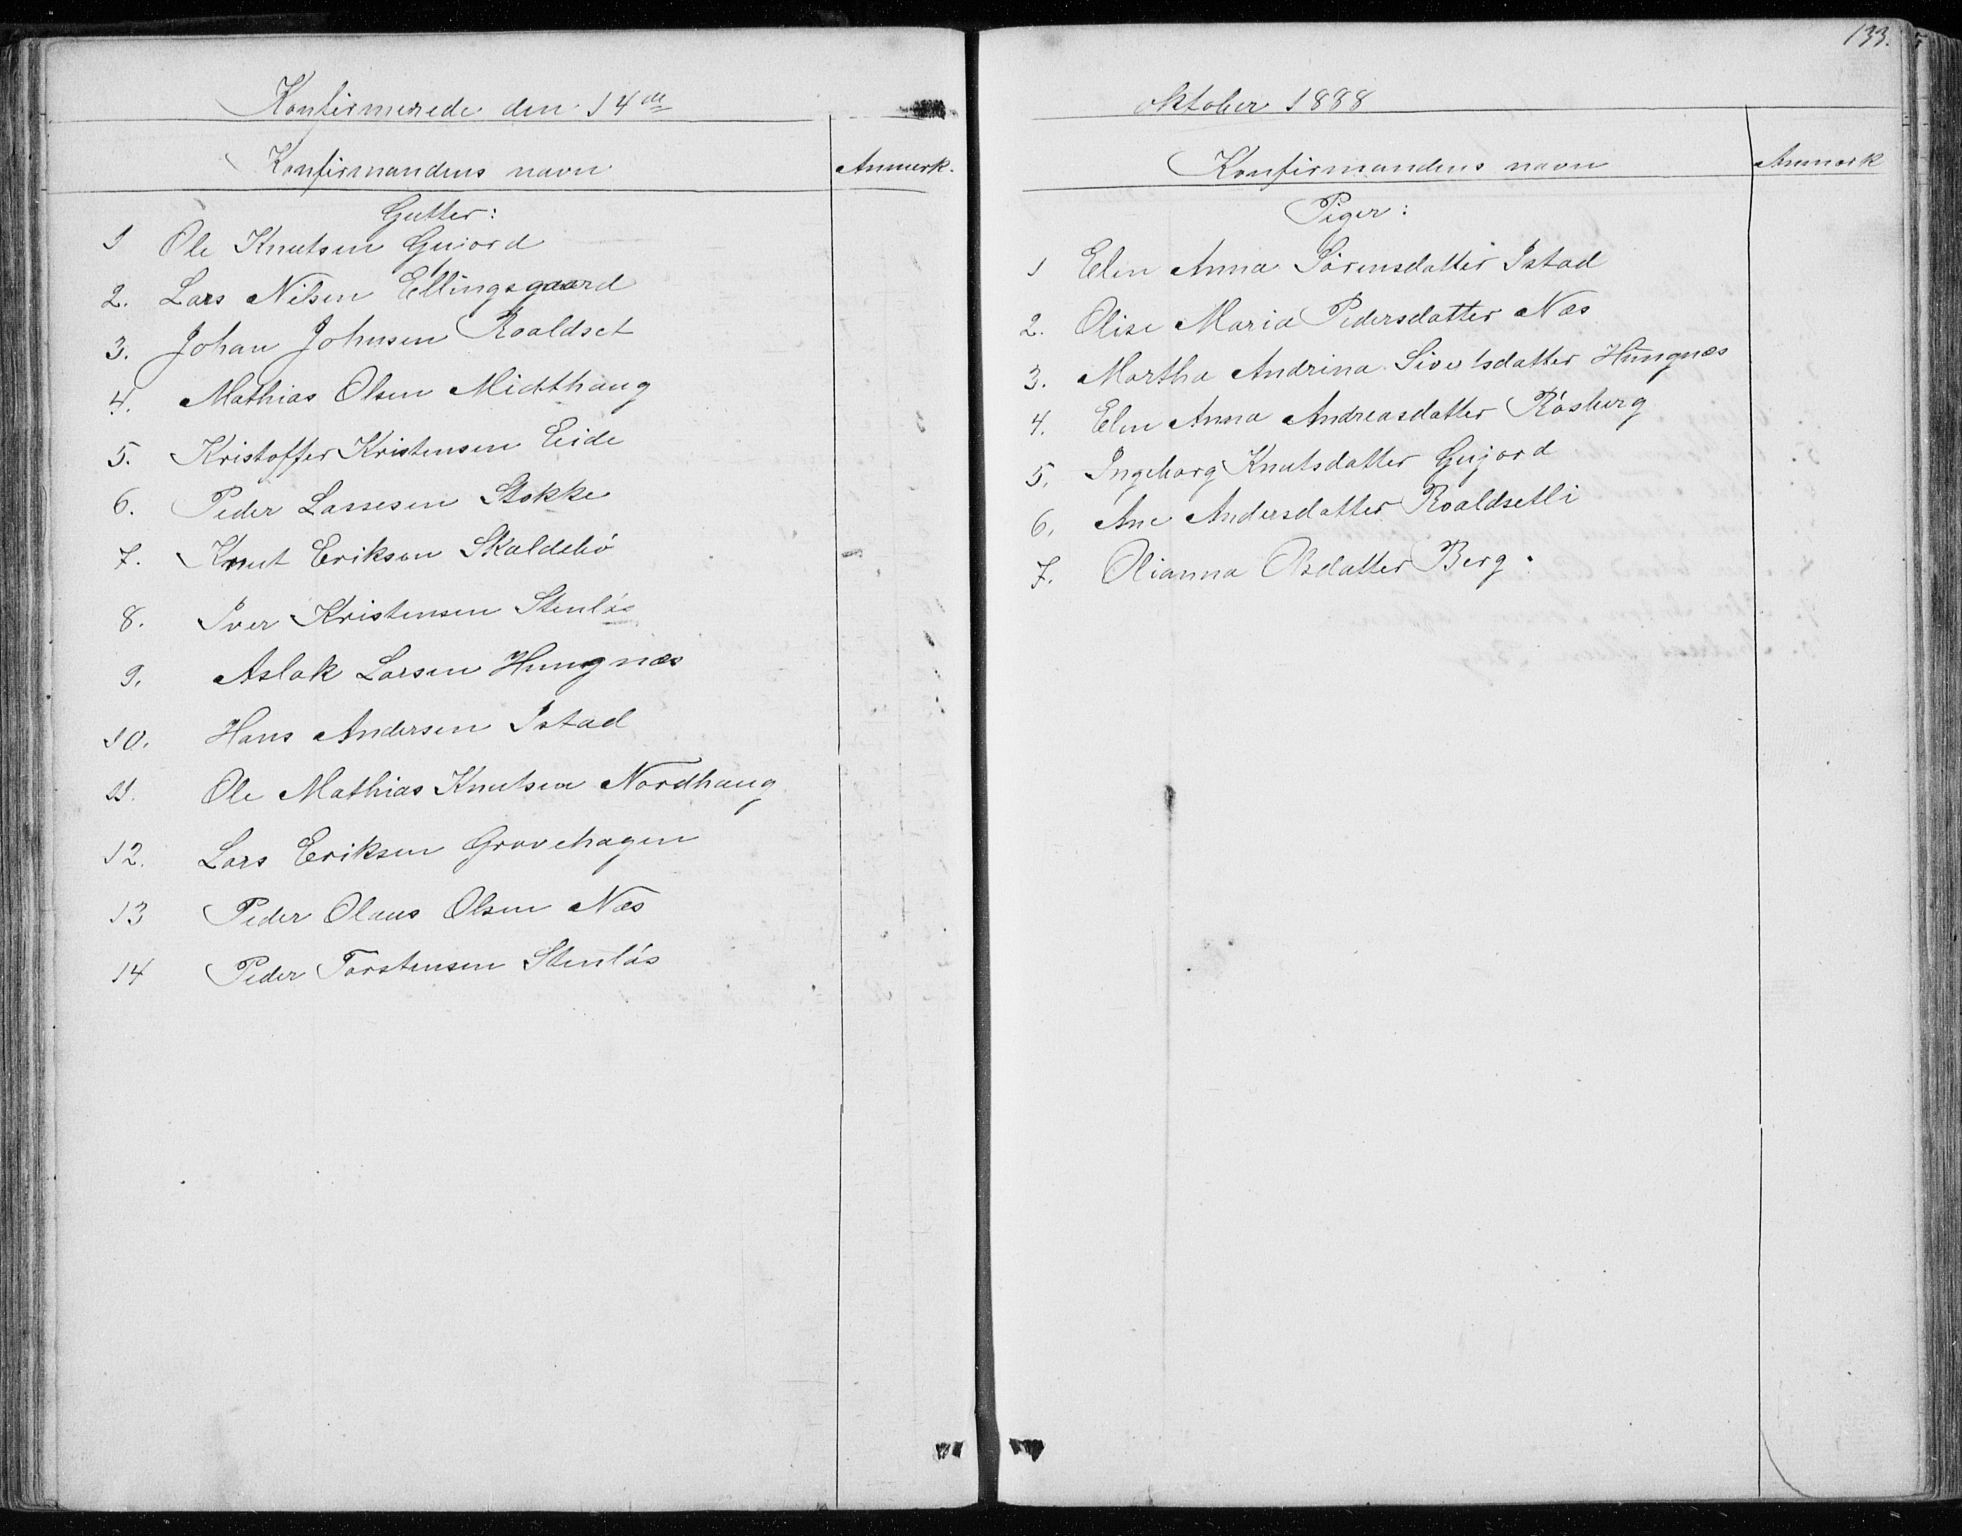 133.
Konfirmerede den 14de
Konfirmandens navn Anmerk.
Gutter:
1 Ole Knutsen Gujord
2. Lars Nilsen Ellingsgaard
3. Johan Johnsen Roaldset
4. Mathias Olsen Midthaug
5. Kristoffer Kristensen Eide
6. Peder Lassesen Stokke
7. Knut Eriksen Skaldebø
8. Iver Kristensen Stenløs
9. Aslak Larsen Hungnæs
10. Hans Andersen Istad
11. Ole Mathias Knutsen Nordhaug
12. Lars Eriksen Grovehagen
13 Peder Olaus Olsen Næs
14 Peder Torstensen Stenløs
oktober 1888
Konfirmandens navn Anmerk
Piger:
1 Elen Anna Sørensdatter Istad
2. Olise Maria Pedersdatter Næs
3. Martha Andrina Sivertsdatter Hungnæs
4. Elen Anna Andreasdatter Røsberg
5. Ingeborg Knutsdatter Gujord
6. Ane Andersdatter Roaldsetli
7. Olianna Olsdatter Berg.